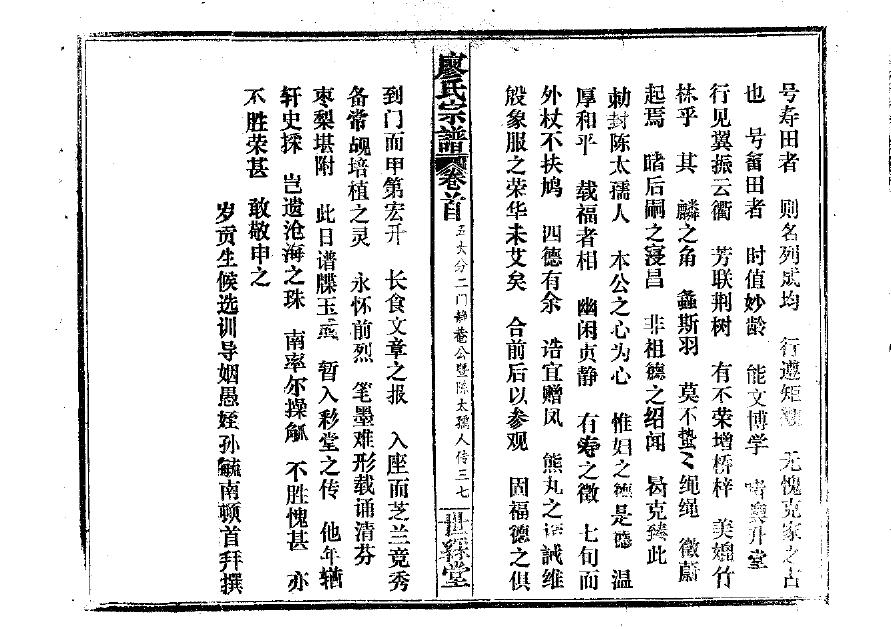 号寿田者 则名列成均 行遵矩 无愧克家之占
也 号畲田者 时值妙龄 能文博学 升堂
行见翼振云衢 芳联荆树 有不荣增桥梓 美媲竹
林乎 其 麟之角 螽斯羽 莫不蛰蛰绳绳 徵蔚
起焉 睹后嗣之寖昌 非祖德之绍闻 曷克臻此
勅封陈太孺人 本公之心为心 惟妇之德是德 温
厚和平 载福者相 幽闲贞静 有寿之徵 七旬而
外杖不扶鸠 四德有余 诰宜赠凤 熊丸之 诫维
殷象服之荣华未艾矣 合前后以参观 固福德之俱
廖氏宗譜 卷首 五大分二门 公暨陈太孺人传三七 世綵堂
到门而甲第宏开 长食文章之报 入座而芝兰竞秀
备常 觇培植之灵 永怀前烈 笔墨难形载诵清芬
枣梨堪附 此日谱牒玉成 暂入彩堂之传 他年
轩史採 岂遗沧海之珠 南率尔操觚 不胜愧甚 亦
不胜荣甚 敢敬申之
岁贡生候选训导姻愚姪孙毓南顿首拜撰